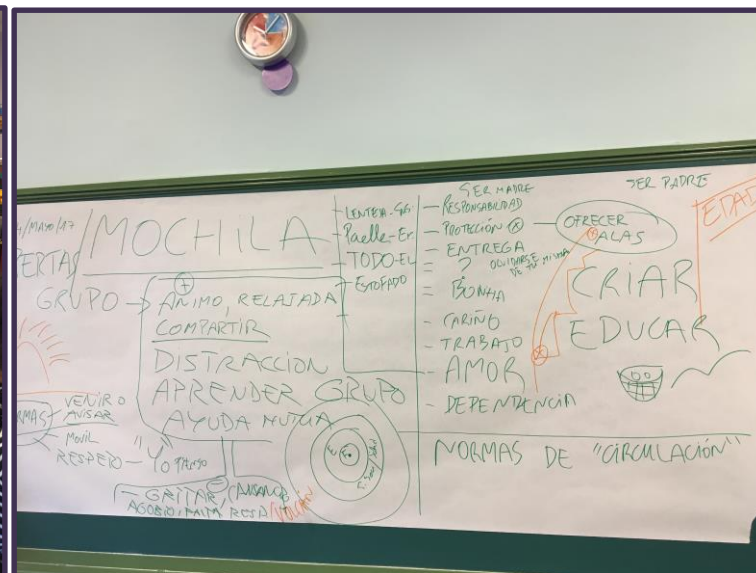 4/MAYO/17
MOCHILA
PERTAS
GRUPO → + ANIMO, RELAJADA
COMPARTIR
DISTRACCION
APRENDER GRUPO
AYUDA MUTUA
VENIR O
AVISAR
RMAS
MOVIL
RESPETO - "YO TENGO
- GRITAR,
AGOBIO, FALTA
VOLCAN
LENTEJA-
Paella-Er
- TODO-EL
- ESTOFADO
SER MADRE
- RESPONSABILIDAD
- PROTECIÓN
- ENTREGA
- ? OLVIDARSE
DE TI MISMA
= BONHA
- CARIÑO
- TRABAJO
- AMOR
- DEPENDENCIA
SER PADRE
OFRECER
ALAS
CRIAR
EDUCAR
EDAD
NORMAS DE "CIRCULACIÓN"